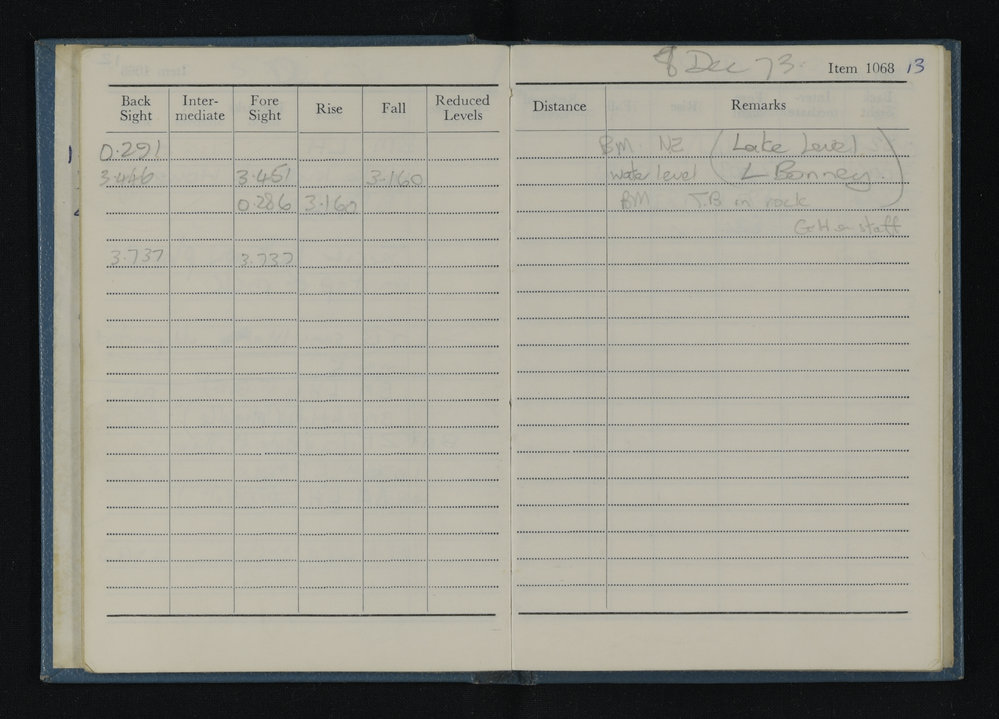 8 Dec 73. Item 1068 13
Back Sight Inter-mediate Fore Sight Rise Fall Reduced Levels Distance Remarks
1 0.291 BM NZ (Lake Level
3.446 3.451 3.160 water level L Bonney.)
0.286 3.160 BM T.B in rock
GH on staff
3.737 3.737